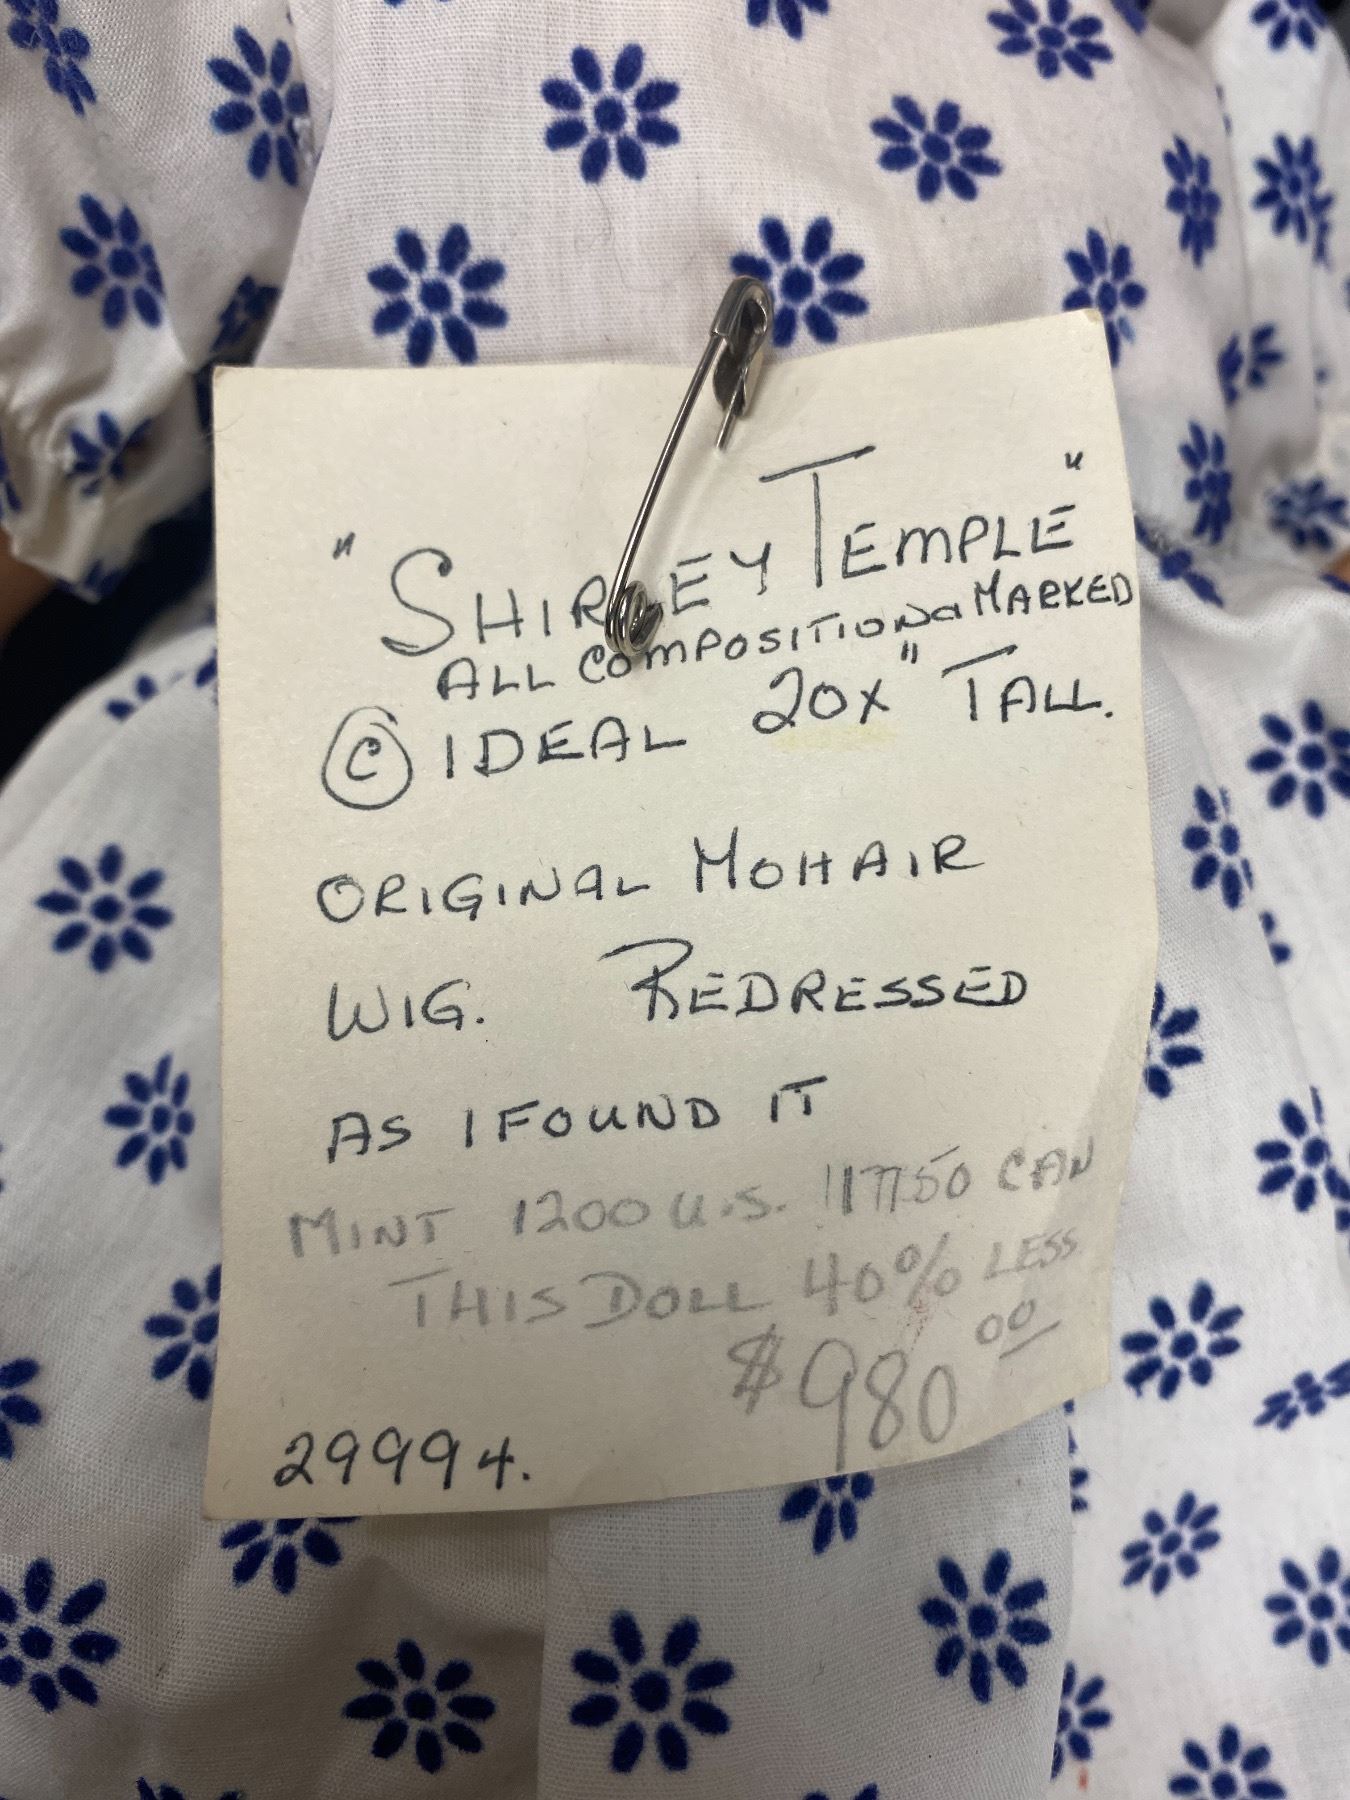 "SHIRLEY TEMPLE"
ALL COMPOSITION & MARKED
© IDEAL 20x" TALL.
ORIGINAL MOHAIR
WIG. REDRESSED
AS I FOUND IT
MINT 1200 U.S. CAN
THIS DOLL 40% LESS
$980 00
29994.